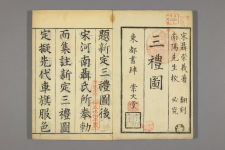 宋聶崇義著
南陽先生校
翻刻必究
三禮圖
東都書肆 崇文堂
題新定三禮圖後
宋河南聶氏所奉勅
而集註新定三禮圖
定擬先代車旗服色